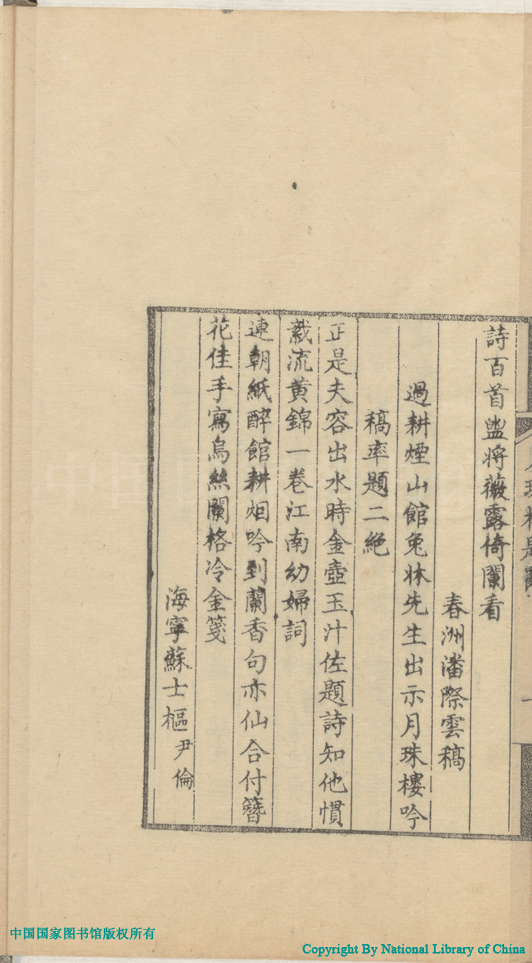 詩百首盥將薇露倚闌看
春洲潘際雲稿
過耕煙山館兔牀先生出示月珠樓吟
稿率題二絕
正是夫容出水時金壺玉汁佐題詩知他慣
裁流黃錦一卷江南幼婦詞
連朝紙醉館耕烟吟到蘭香句亦仙合付簪
花佳手寫烏絲闌格冷金箋
海寧蘇士樞尹倫
中国国家图书馆版权所有
Copyright By National Library of China